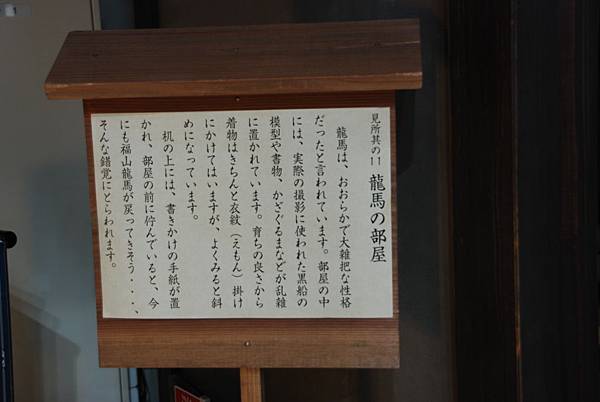 見所其の11 龍馬の部屋
龍馬は、おおらかで大雑把な性格
だったと言われています。部屋の中
には、実際の撮影に使われた黒船の
模型や書物、かざぐるまなどが乱雑
に置かれています。育ちの良さから
着物はきちんと衣紋（えもん）掛け
にかけてはいますが、よくみると斜
めになっています。
机の上には、書きかけの手紙が置
かれ、部屋の前に佇んでいると、今
にも福山龍馬が戻ってきそう・・・、
そんな錯覚にとらわれます。